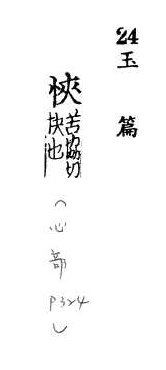 24
玉篇
悏苦協切
快也
（心部 P324）